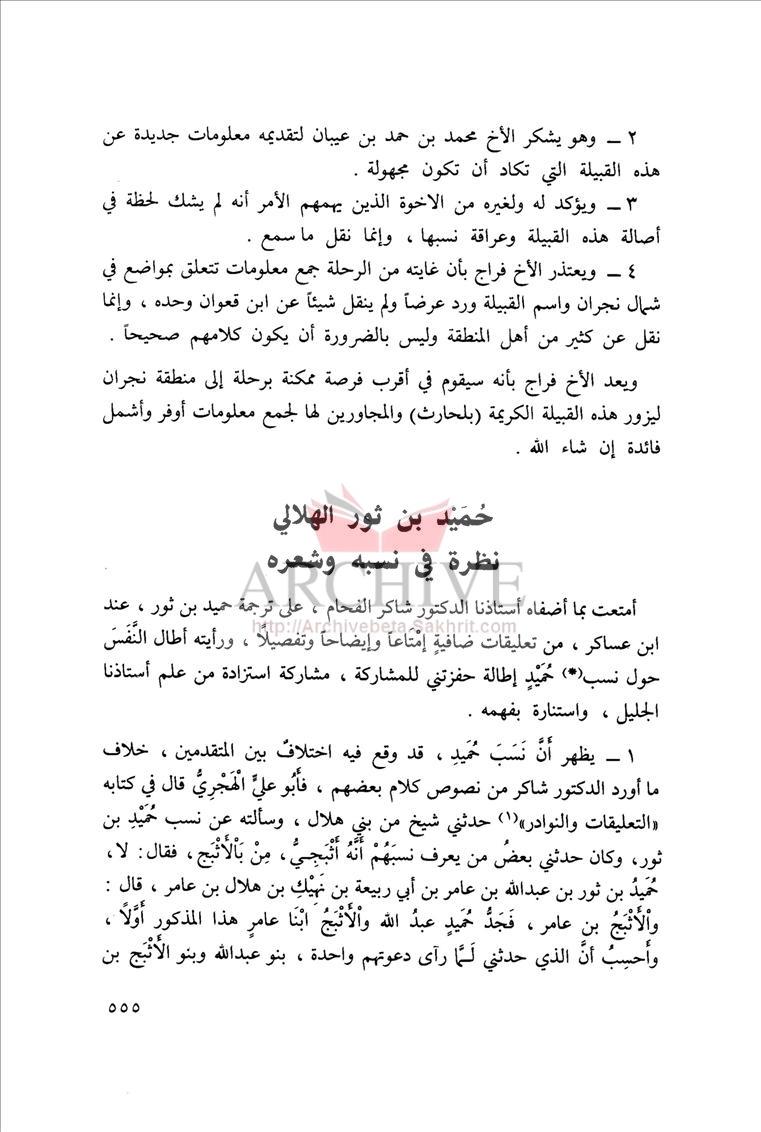 ٢ ــ وهو يشكر الأخ محمد بن حمد بن عيبان لتقديمه معلومات جديدة عن
هذه القبيلة التي تكاد أن تكون مجهولة .
٣ ــ ويؤكد له ولغيره من الاخوة الذين يهمهم الأمر أنه لم يشك لحظة في
أصالة هذه القبيلة وعراقة نسبها ، وإنما نقل ما سمع .
٤ ــ ويعتذر الأخ فراج بأن غايته من الرحلة جمع معلومات تتعلق بمواضع في
شمال نجران واسم القبيلة ورد عرضاً ولم ينقل شيئاً عن ابن قعوان وحده ، وإنما
نقل عن كثير من أهل المنطقة وليس بالضرورة أن يكون كلامهم صحيحاً .
ويعد الأخ فراج بأنه سيقوم في أقرب فرصة ممكنة برحلة إلى منطقة نجران
ليزور هذه القبيلة الكريمة (بلحارث) والمجاورين لها لجمع معلومات أوفر وأشمل
فائدة إن شاء الله .
حُمَيْد بن ثور الهلالي
نظرة في نسبه وشعره
ARCHIVE
أمتعت بما أضفاه أستاذنا الدكتور شاكر الفحام ، على ترجمة حميد بن ثور ، عند
http://Archivebeta.Sakhrit.com
ابن عساكر ، من تعليقات ضافيةٍ إمْتَاعاً وإيضاحاً وتفصيلاً ، ورأيته أطال النَّفَسَ
حول نسب(*) حُمَيْدٍ إطالة حفزتني للمشاركة ، مشاركة استزادة من علم أستاذنا
الجليل ، واستنارة بفهمه .
١ ــ يظهر أَنَّ نَسَبَ حُمَيدِ ، قد وقع فيه اختلافٌ بين المتقدمين ، خلاف
ما أورد الدكتور شاكر من نصوص كلام بعضهم ، فأَبُو عليٍّ الْهَجْرِيُّ قال في كتابه
«التعليقات والنوادر»(١) حدثني شيخ من بني هلال ، وسألته عن نسب حُمَيْدِ بن
ثور، وكان حدثني بعضُ من يعرف نسبَهُمْ أنَّهُ أَثْبَجِيُّ، مِنْ بَاْلأَثْبَج، فقال: لا،
حُمَيدُ بن ثور بن عبدالله بن عامر بن أبي ربيعة بن نَهِيْكِ بن هلال بن عامر ، قال :
واْلأَثْبَجُ بن عامر ، فَجَدُّ حُمَيدٍ عبدُ الله واْلأَثْبَجُ ابْنَا عامرٍ هذا المذكور أَوَّلاً ،
وأَحسِبُ أنَّ الذي حدثني لَـمَّا رآى دعوتهم واحدة ، بنو عبدالله وبنو الأَثْبَج بن
٥٥٥